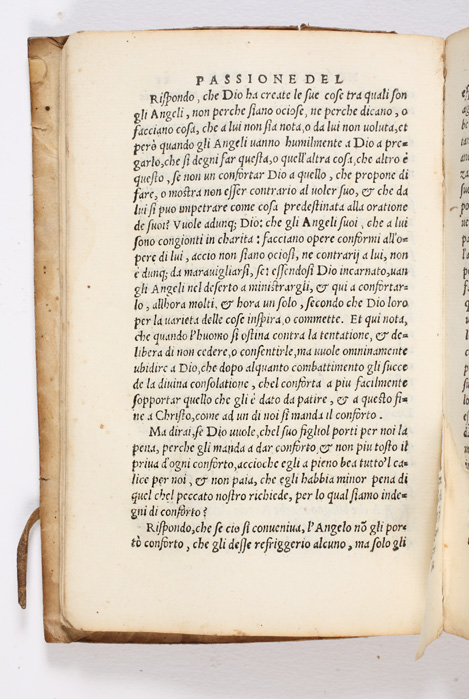 PASSIONE DEL
Rispondo, che Dio ha create le sue cose tra quali son
gli Angeli, non perche siano ociose, ne perche dicano, o
facciano cosa, che a lui non sia nota, o da lui non uoluta, et
però quando gli Angeli uanno humilmente a Dio a pre-
garlo, che si degni far questa, o quell'altra cosa, che altro è
questo, se non un confortar Dio a quello, che propone di
fare, o mostra non esser contrario al uoler suo, & che da
lui si puo impetrare come cosa predestinata alla oratione
de suoi? Vuole adunq; Dio: che gli Angeli suoi, che a lui
sono congionti in charita: facciano opere conformi all'o-
pere di lui, accio non siano ociosi, ne contrarij a lui, non
è dunq; da marauigliarsi, se: essendosi Dio incarnato, uan
gli Angeli nel deserto a ministrargli, & qui a confortar-
lo, allhora molti, & hora un solo, secondo che Dio loro
per la uarieta delle cose inspira, o commette. Et qui nota,
che quando l'huomo si ostina contra la tentatione, & de-
libera di non cedere, o consentirle, ma uuole omninamente
ubidire a Dio, che dopo alquanto combattimento gli succe
de la diuina consolatione, chel conforta a piu facilmente
sopportar quello che gli è dato da patire, & a questo fi-
ne a Christo, come ad un di noi si manda il conforto.
Ma dirai, se Dio uuole, chel suo figliol porti per noi la
pena, perche gli manda a dar conforto, & non piu tosto il
priua d'ogni conforto, accioche egli a pieno bea tutto'l ca-
lice per noi, & non paia, che egli habbia minor pena di
quel chel peccato nostro richiede, per lo qual siamo inde-
gni di conforto?
Rispondo, che se cio si conueniua, l'Angelo nõ gli por-
tò conforto, che gli desse refriggerio alcuno, ma solo gli